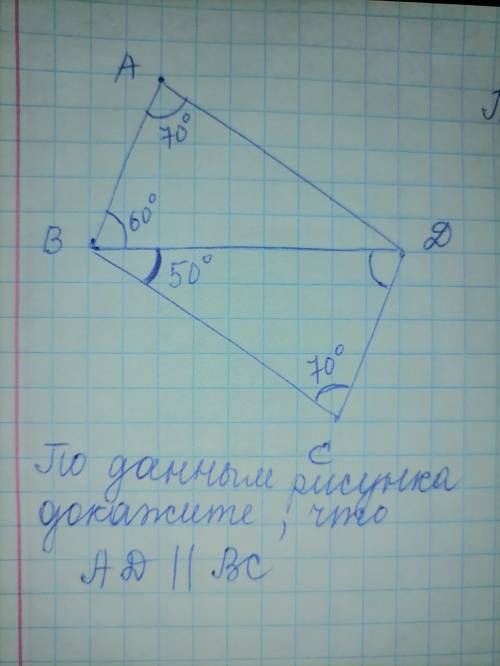 A
70°
60°
B
Д
50°
70°
C
По данным рисунка
докажите, что
AД || BC